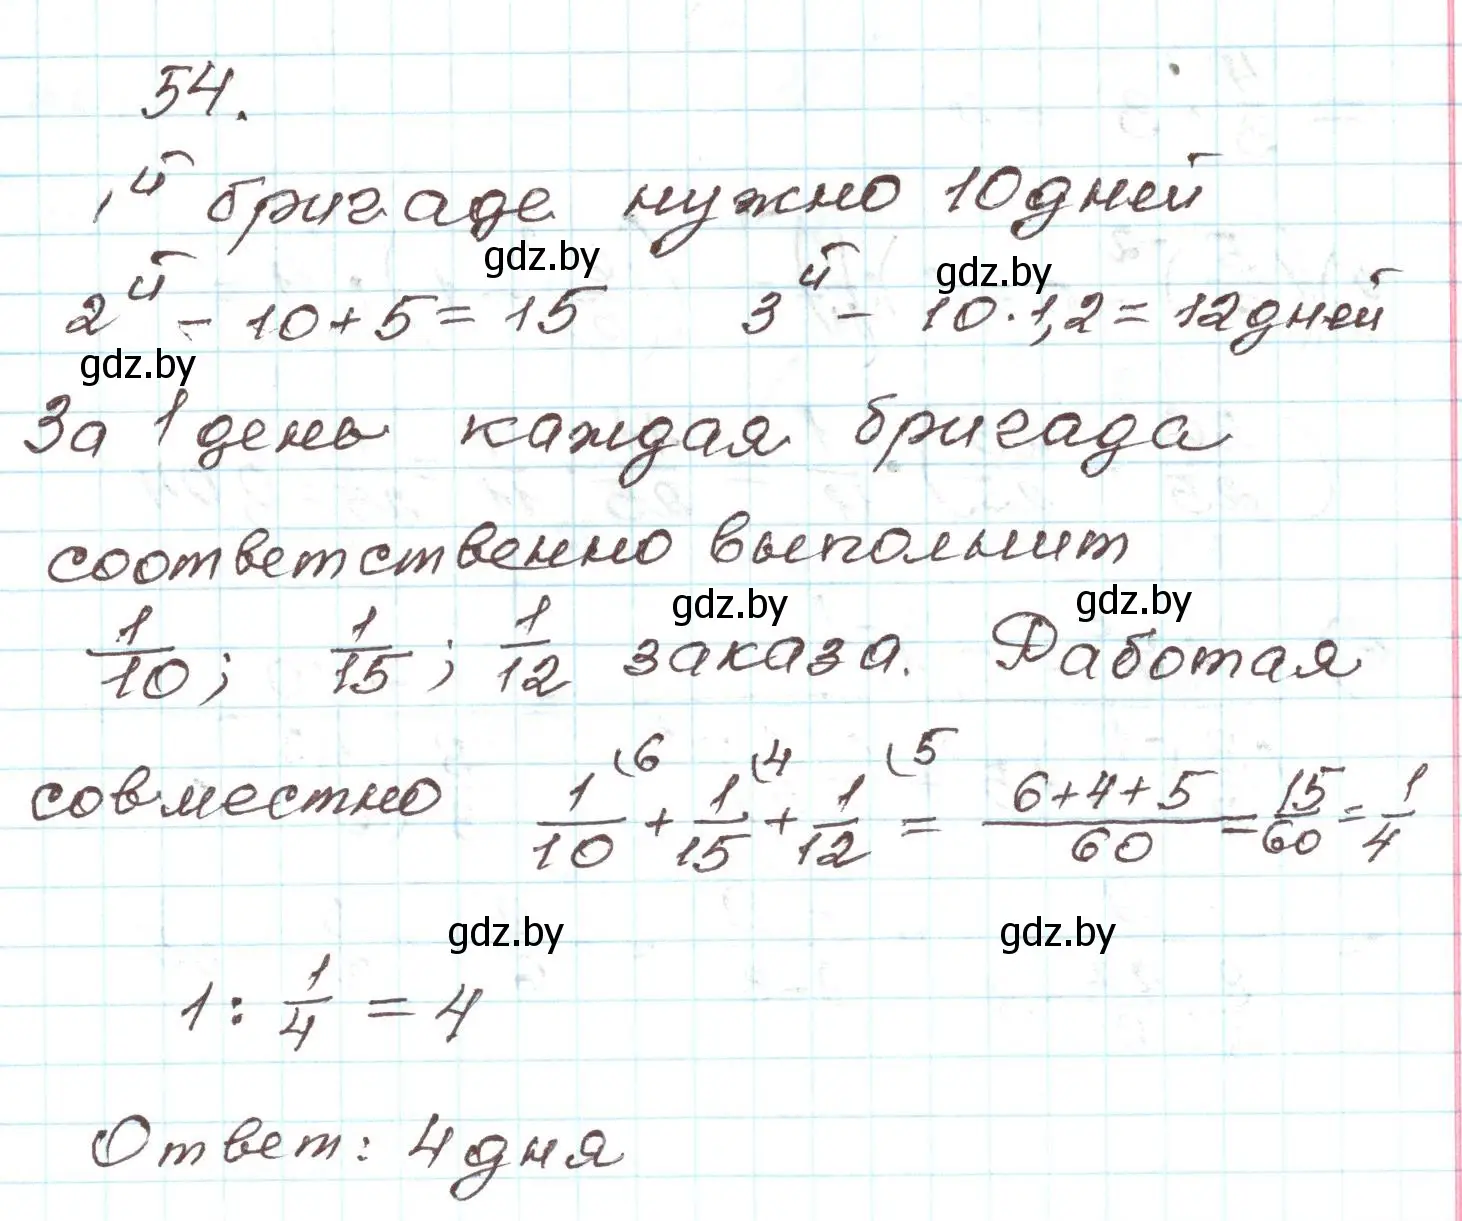 54.
1й бригаде нужно 10 дней
gdz.by
2й – 10+5=15 3й – 10·1,2=12 дней
gdz.by
gdz.by
За 1 день каждая бригада
соответственно выполнит
gdz.by gdz.by
1/10; 1/15; 1/12 заказа. Работая
совместно 1/10(6 + 1/15(4 + 1/12(5 = (6+4+5)/60 = 15/60 = 1/4
gdz.by gdz.by
1 : 1/4 = 4
Ответ: 4 дня